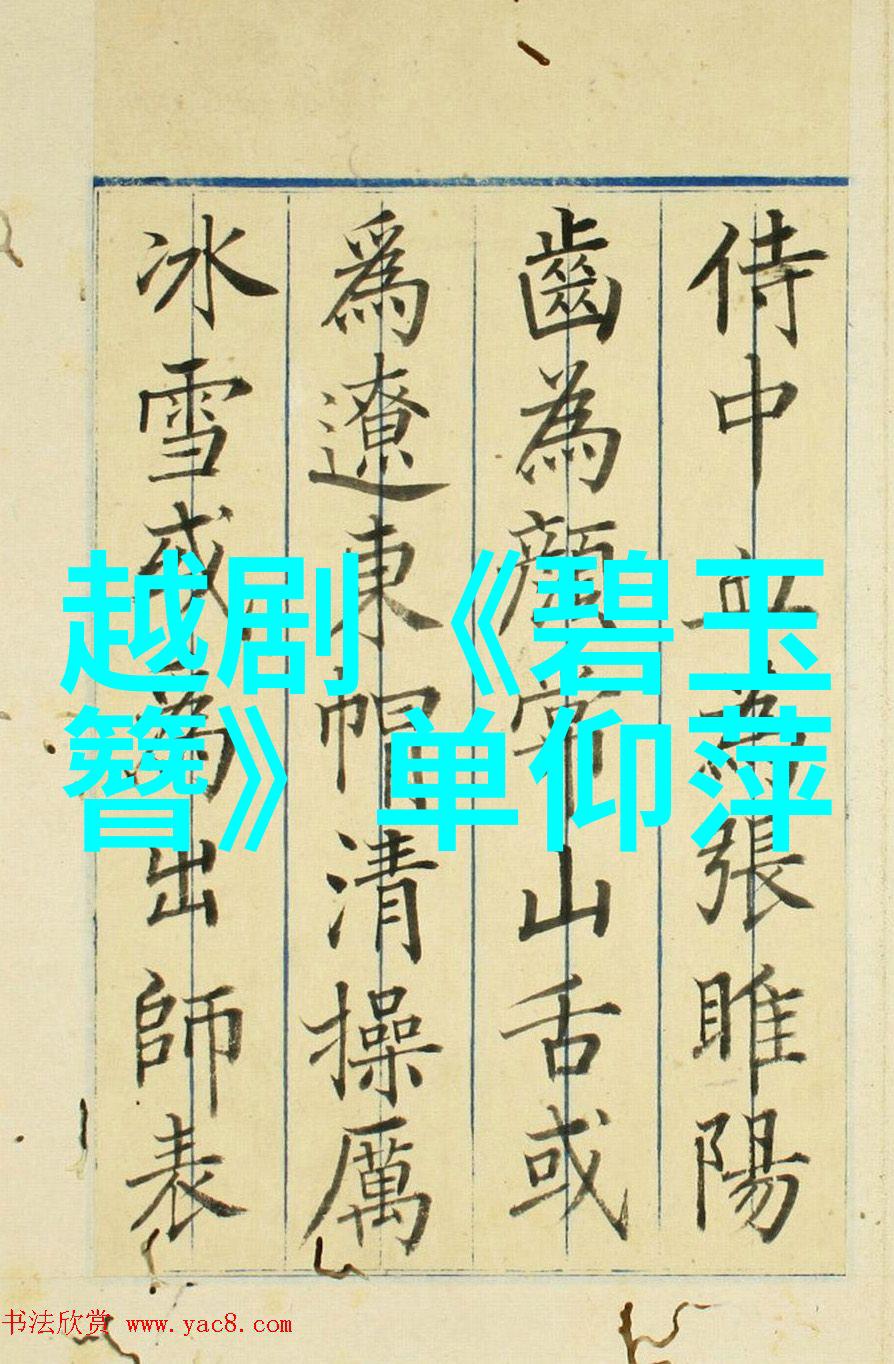 侍中血為張睢陽
齒為顏常山舌或
爲遼東帽清操厲
冰雪或爲出師表
越剧《碧玉
簪》单仰萍
书法欣赏 www.yac8.com